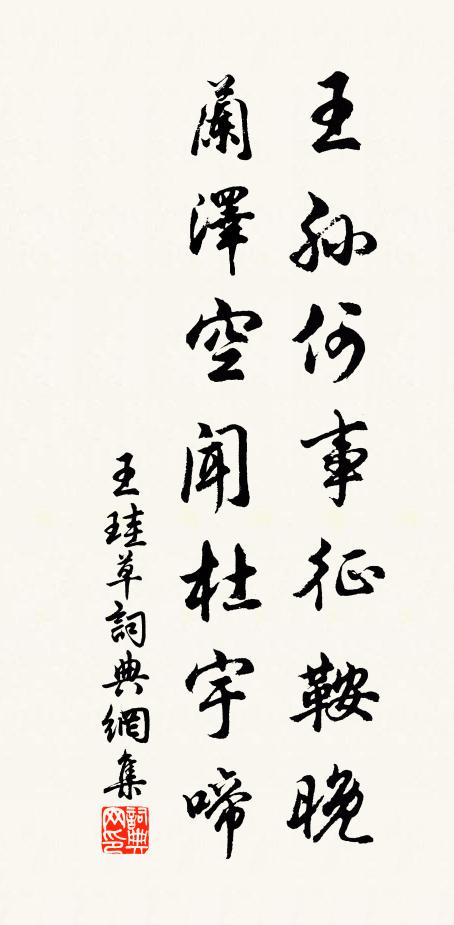 王孫何事征鞍晚
蘭澤空聞杜宇啼
王珪草詞典網集
詞典网印